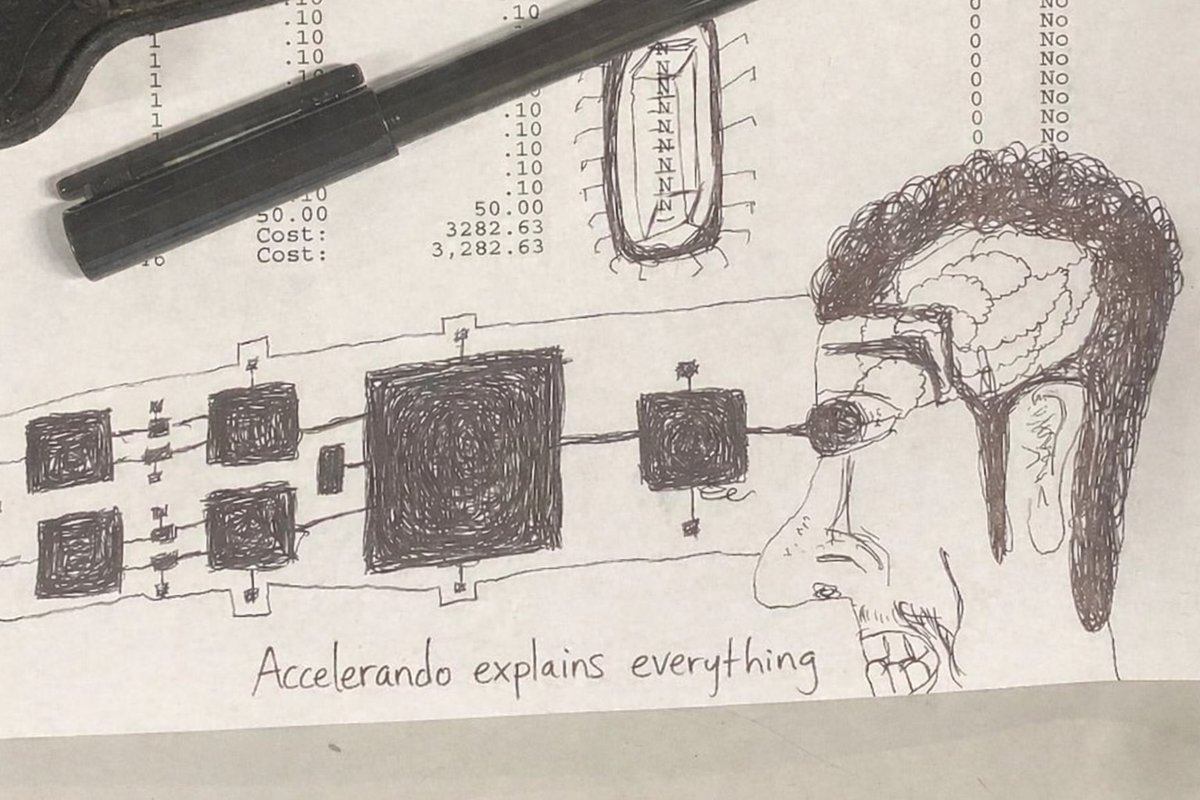 .10
.10 .10 0 No
1 .10 0 No
1 .10 N 0 No
1 .10 N 0 No
1 N 0 No
1 .10 N 0 No
1 .10 N 0 No
.10 N 0 No
.10 N No
.10 .10 N
50.00 50.00 N
Cost: 3282.63
16 Cost: 3,282.63
Accelerando explains everything